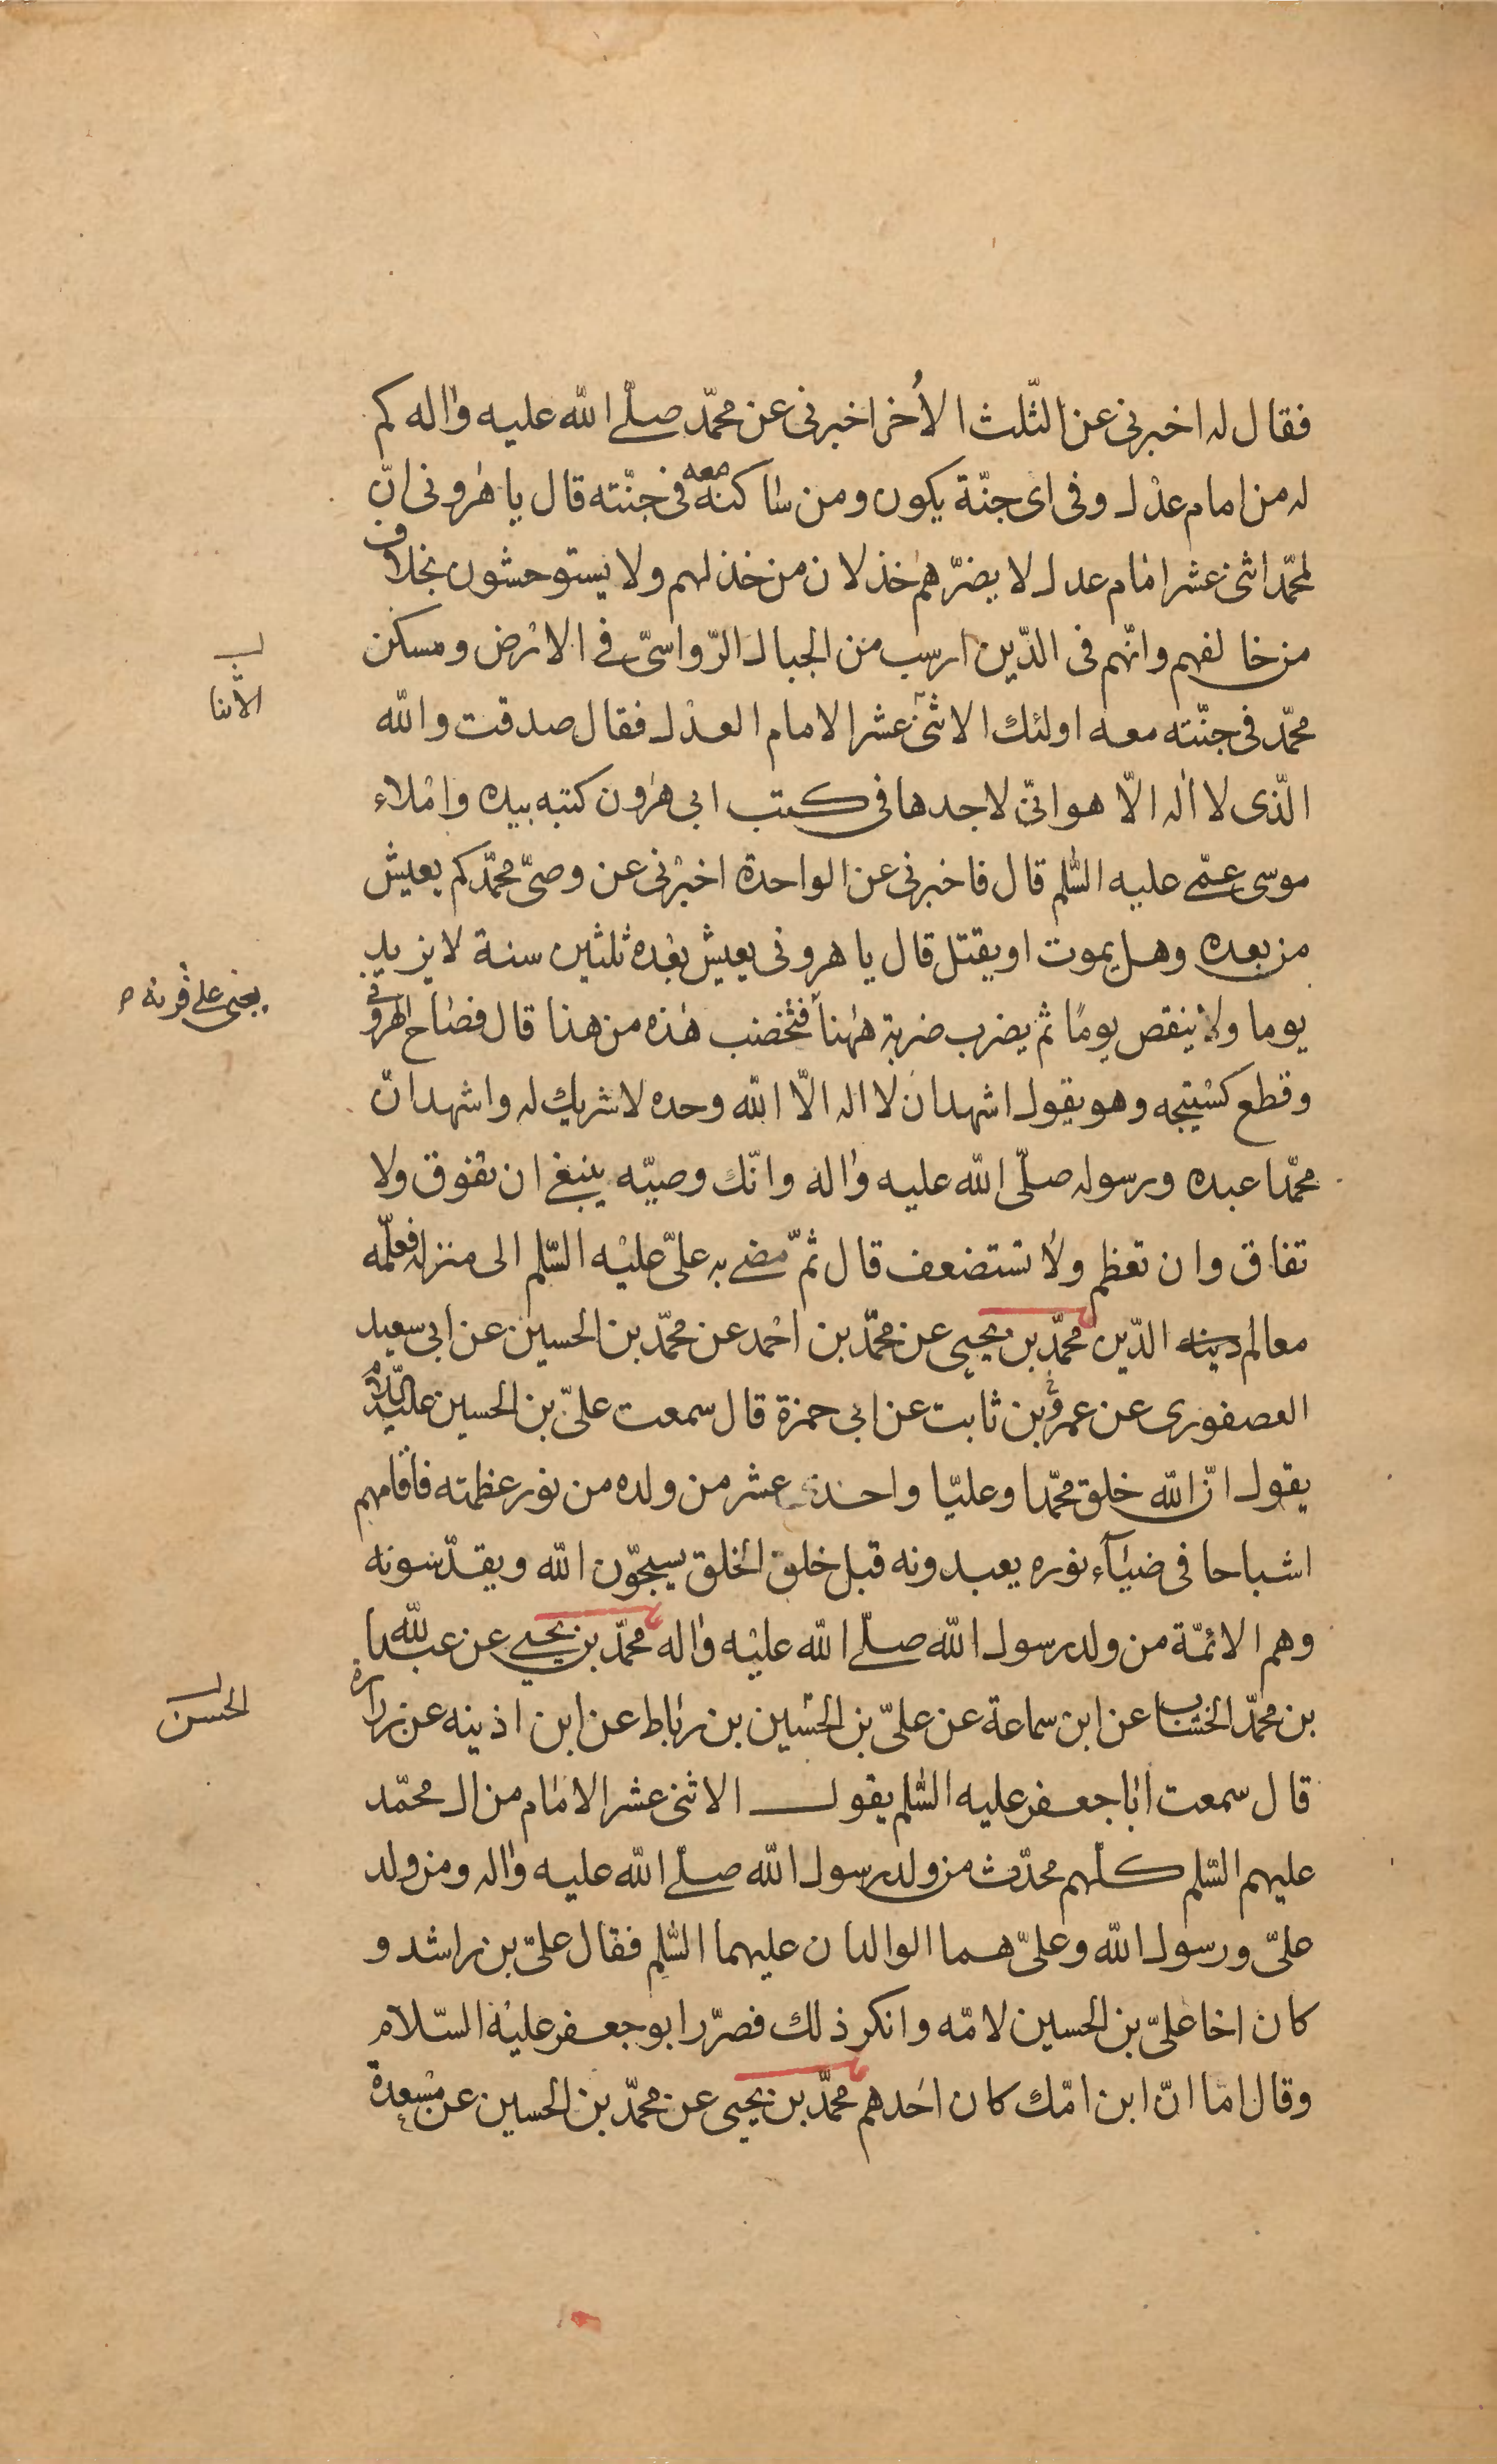 فقال له اخبرنى عن الثّلث الأُخر اخبرنى عن محمّد صلّى الله عليه واله كم
له من امام عدل وفى اى جنّة يكون ومن ساكنه معه فى جنّته قال يا هٰرونى انّ
لمحمّد اثنى عشر امام عدل لا يضرّهم خذلان من خذلهم ولا يستوحشون بخلاف
من خالفهم وانّهم فى الدّين ارسب من الجبال الرّواسىّ فى الارض ومسكن
محمّد فى جنّته معه اولئك الاثنى عشر الامام العدل فقال صدقت والله
الّذى لا اله الّا هو انّى لاجدها فى كتب ابى هٰرون كتبه بيده واملاء
موسى عمّى عليه السّلم قال فاخبرنى عن الواحدة اخبرنى عن وصىّ محمّد كم يعيش
من بعده وهل يموت او يقتل قال يا هرونى يعيش بعده ثلثين سنة لا يزيد
يوما ولا ينقص يومًا ثم يضرب ضربة هٰهنا فتخضب هٰذه من هذا قال فصاح الهرونى
وقطع كستيجه وهو يقول اشهد ان لا اله الّا الله وحده لا شريك له واشهد انّ
محمّدا عبده ورسوله صلّى الله عليه واله وانّك وصيّه ينبغى ان تفوق ولا
تفاق وان تعظم ولا تستضعف قال ثمّ مضى به علىّ عليه السّلم الى منزله فعلّمه
معالم دينه الدّين محمّد بن يحيى عن محمّد بن احمد عن محمّد بن الحسين عن ابى سعيد
العصفورى عن عمرو بن ثابت عن ابى حمزة قال سمعت علىّ بن الحسين عليه السّلام
يقول انّ الله خلق محمّدا وعليّا واحد عشر من ولده من نور عظمته فاقامهم
اشباحا فى ضيآء نوره يعبدونه قبل خلق الخلق يسبحّون الله ويقدّسونه
وهم الائمّة من ولد رسول الله صلّى الله عليه واله محمّد بن يحيى عن عبد الله
بن محمّد الخشاب عن ابن سماعة عن علىّ بن الحسين بن رباط عن ابن اذينه عن زرارة
قال سمعت ابا جعفر عليه السّلم يقول الاثنى عشر الامام من ال محمّد
عليهم السّلم كلّهم محدّث من ولد رسول الله صلّى الله عليه واله ومن ولد
علىّ ورسول الله وعلىّ هما الوالدان عليهما السّلم فقال علىّ بن راشد و
كان اخا علىّ بن الحسين لامّه وانكر ذلك فصرّر ابو جعفر عليه السّلام
وقال اما انّ ابن امّك كان احدهم محمّد بن يحيى عن محمّد بن الحسين عن مسعدة
يعنى على قرنه
الحسن